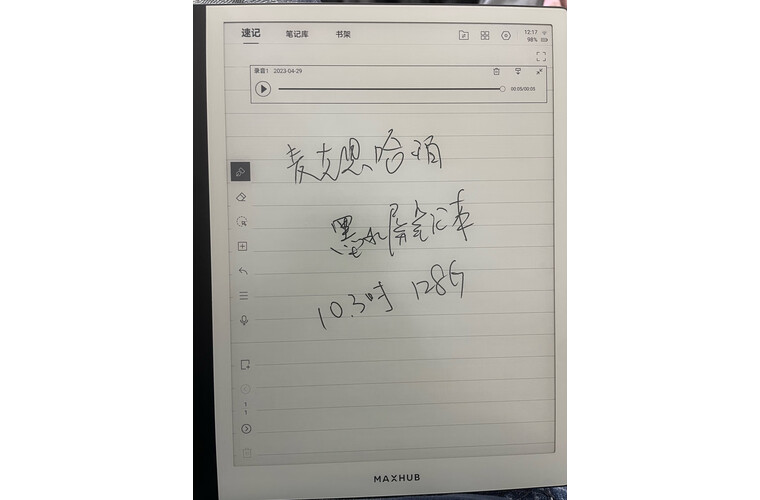 速记 笔记库 书架 12:17
98%
录音1 2023-04-29
00:05/00:05
麦克思哈项
墨水屏笔记本
10.3吋 128G
1
1
MAXHUB